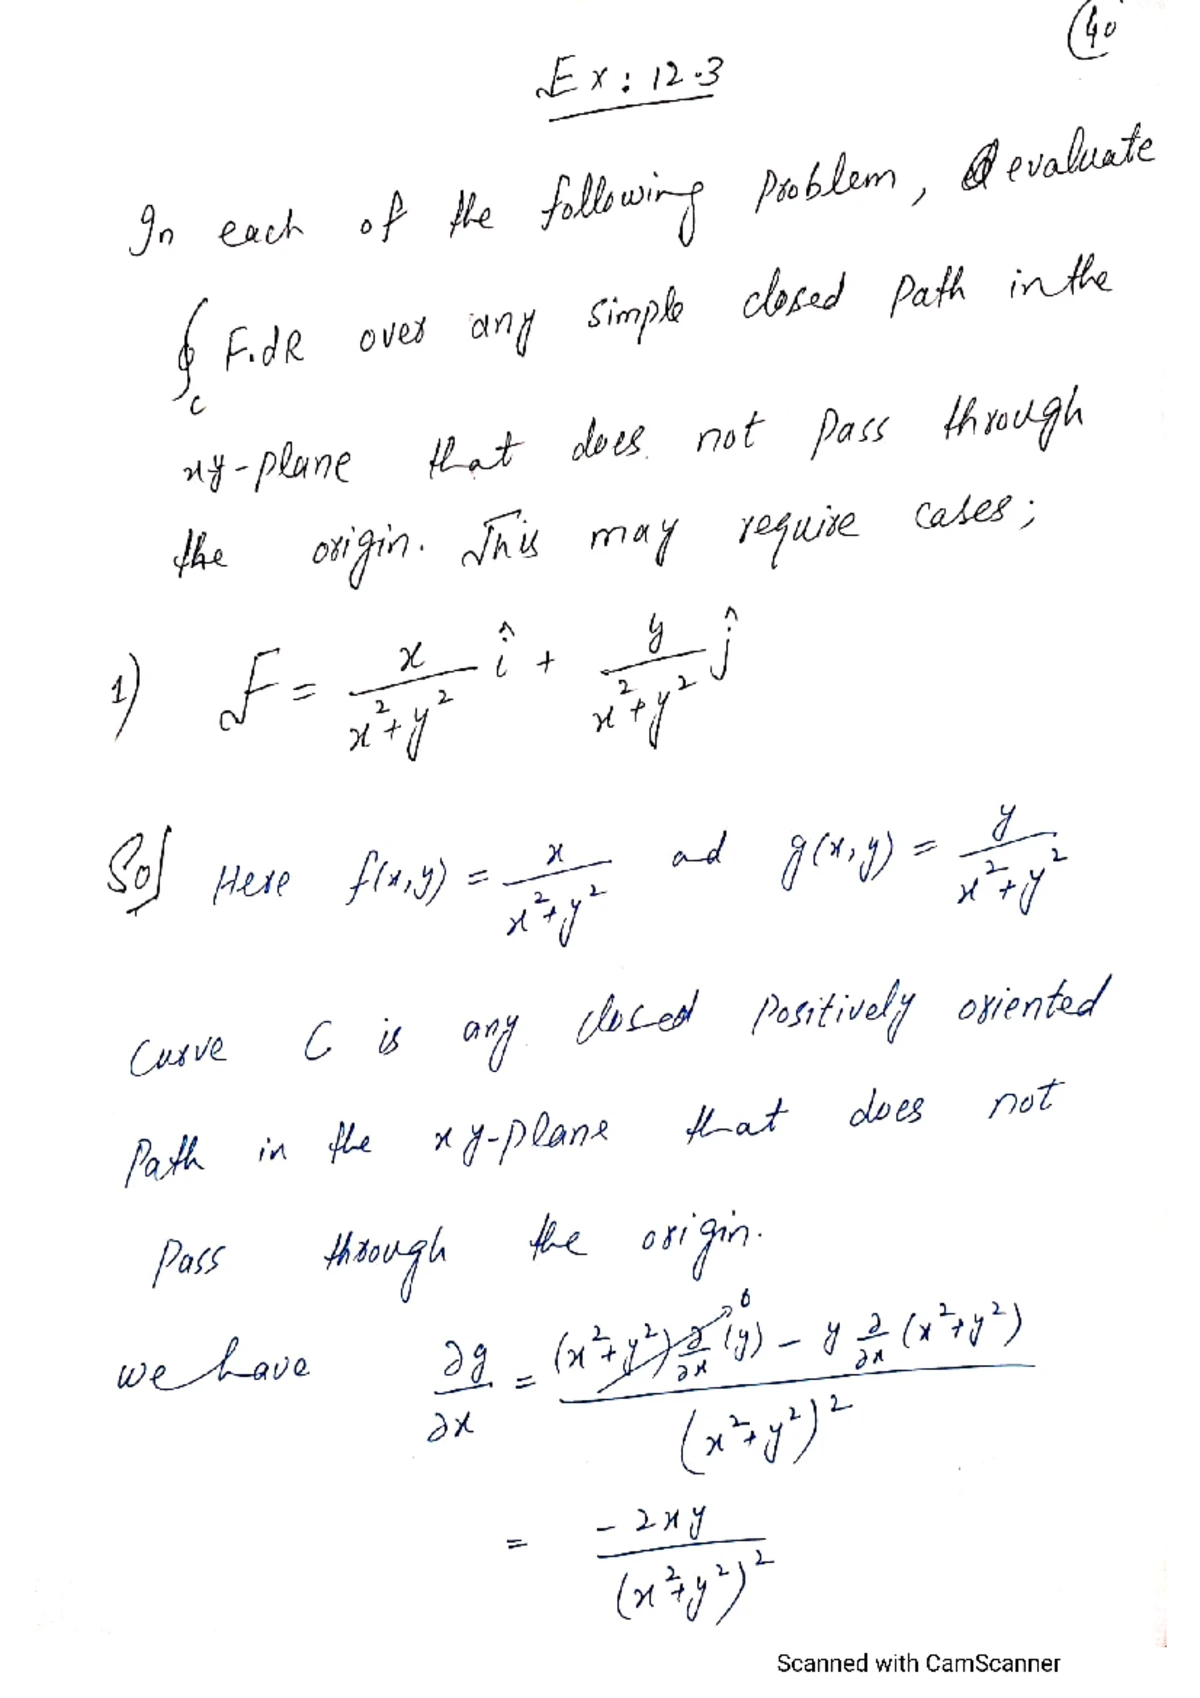 (40
Ex: 12.3
In each of the following Problem, evaluate
∮_C F.dR over any simple closed Path in the
xy-plane that does not Pass through
the origin. This may require cases;
1) F = x/(x²+y²) î + y/(x²+y²) ĵ
Sol Here f(x,y) = x/(x²+y²) and g(x,y) = y/(x²+y²)
Curve C is any closed Positively oriented
Path in the xy-plane that does not
Pass through the origin.
we have ∂g/∂x = ((x²+y²) ∂/∂x (y) → 0 − y ∂/∂x (x²+y²))/(x²+y²)²
= −2xy/(x²+y²)²
Scanned with CamScanner